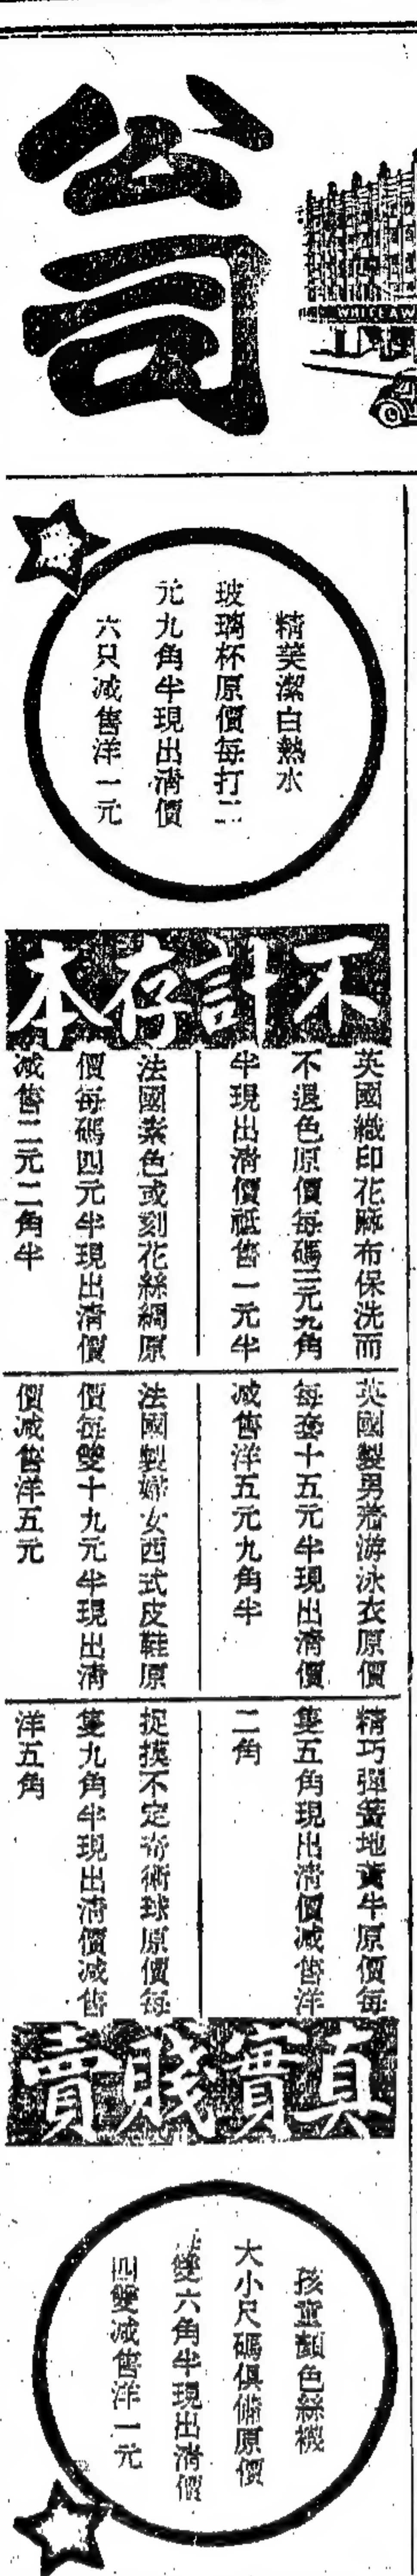 公司
WHITEAW
精美潔白熱水
玻璃杯原價每打二
元九角半現出清價
六只減售洋一元
不計存本
英國織印花麻布保洗而
不退色原價每碼三元九角
半現出清價祗售一元半
法國素色或刻花絲綢原
價每碼四元半現出清價
減售二元二角半
英國製男著游泳衣原價
每套十五元半現出清價
減售洋五元九角半
法國製婦女西式皮鞋原
價每雙十九元半現出清
價減售洋五元
精巧彈簧地黃牛原價每
隻五角現出清價減售洋
二角
捉摸不定奇術球原價每
隻九角半現出清價減售
洋五角
真實賤賣
孩童顏色絲襪
大小尺碼俱備原價
雙六角半現出清價
四雙減售洋一元